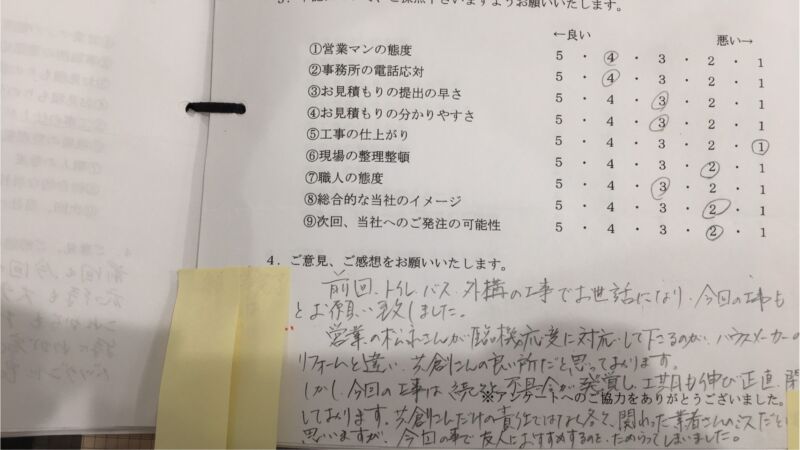 お願いいたします。
←良い 悪い→
①営業マンの態度 5 ・ 4 ・ 3 ・ 2 ・ 1
②事務所の電話応対 5 ・ 4 ・ 3 ・ 2 ・ 1
③お見積もりの提出の早さ 5 ・ 4 ・ 3 ・ 2 ・ 1
④お見積もりの分かりやすさ 5 ・ 4 ・ 3 ・ 2 ・ 1
⑤工事の仕上がり 5 ・ 4 ・ 3 ・ 2 ・ 1
⑥現場の整理整頓 5 ・ 4 ・ 3 ・ 2 ・ 1
⑦職人の態度 5 ・ 4 ・ 3 ・ 2 ・ 1
⑧総合的な当社のイメージ 5 ・ 4 ・ 3 ・ 2 ・ 1
⑨次回、当社へのご発注の可能性 5 ・ 4 ・ 3 ・ 2 ・ 1
4．ご意見、ご感想をお願いいたします。
前回、トイレ、バス、外構の工事でお世話になり、今回の工事も
とお願い致しました。
営業の松永さんが臨機応変に対応して下さるのが、ハウスメーカーの
リフォームと違い、共創さんの良い所だと思っております。
しかし、今回の工事は続々と不具合が発覚し、工期も伸び正直、
※アンケートへのご協力をありがとうございました。
しております。共創さんだけの責任ではなく各々、関わった業者さんのミスだと
思いますが、今回の事で友人におすすめするのを、ためらってしまいました。